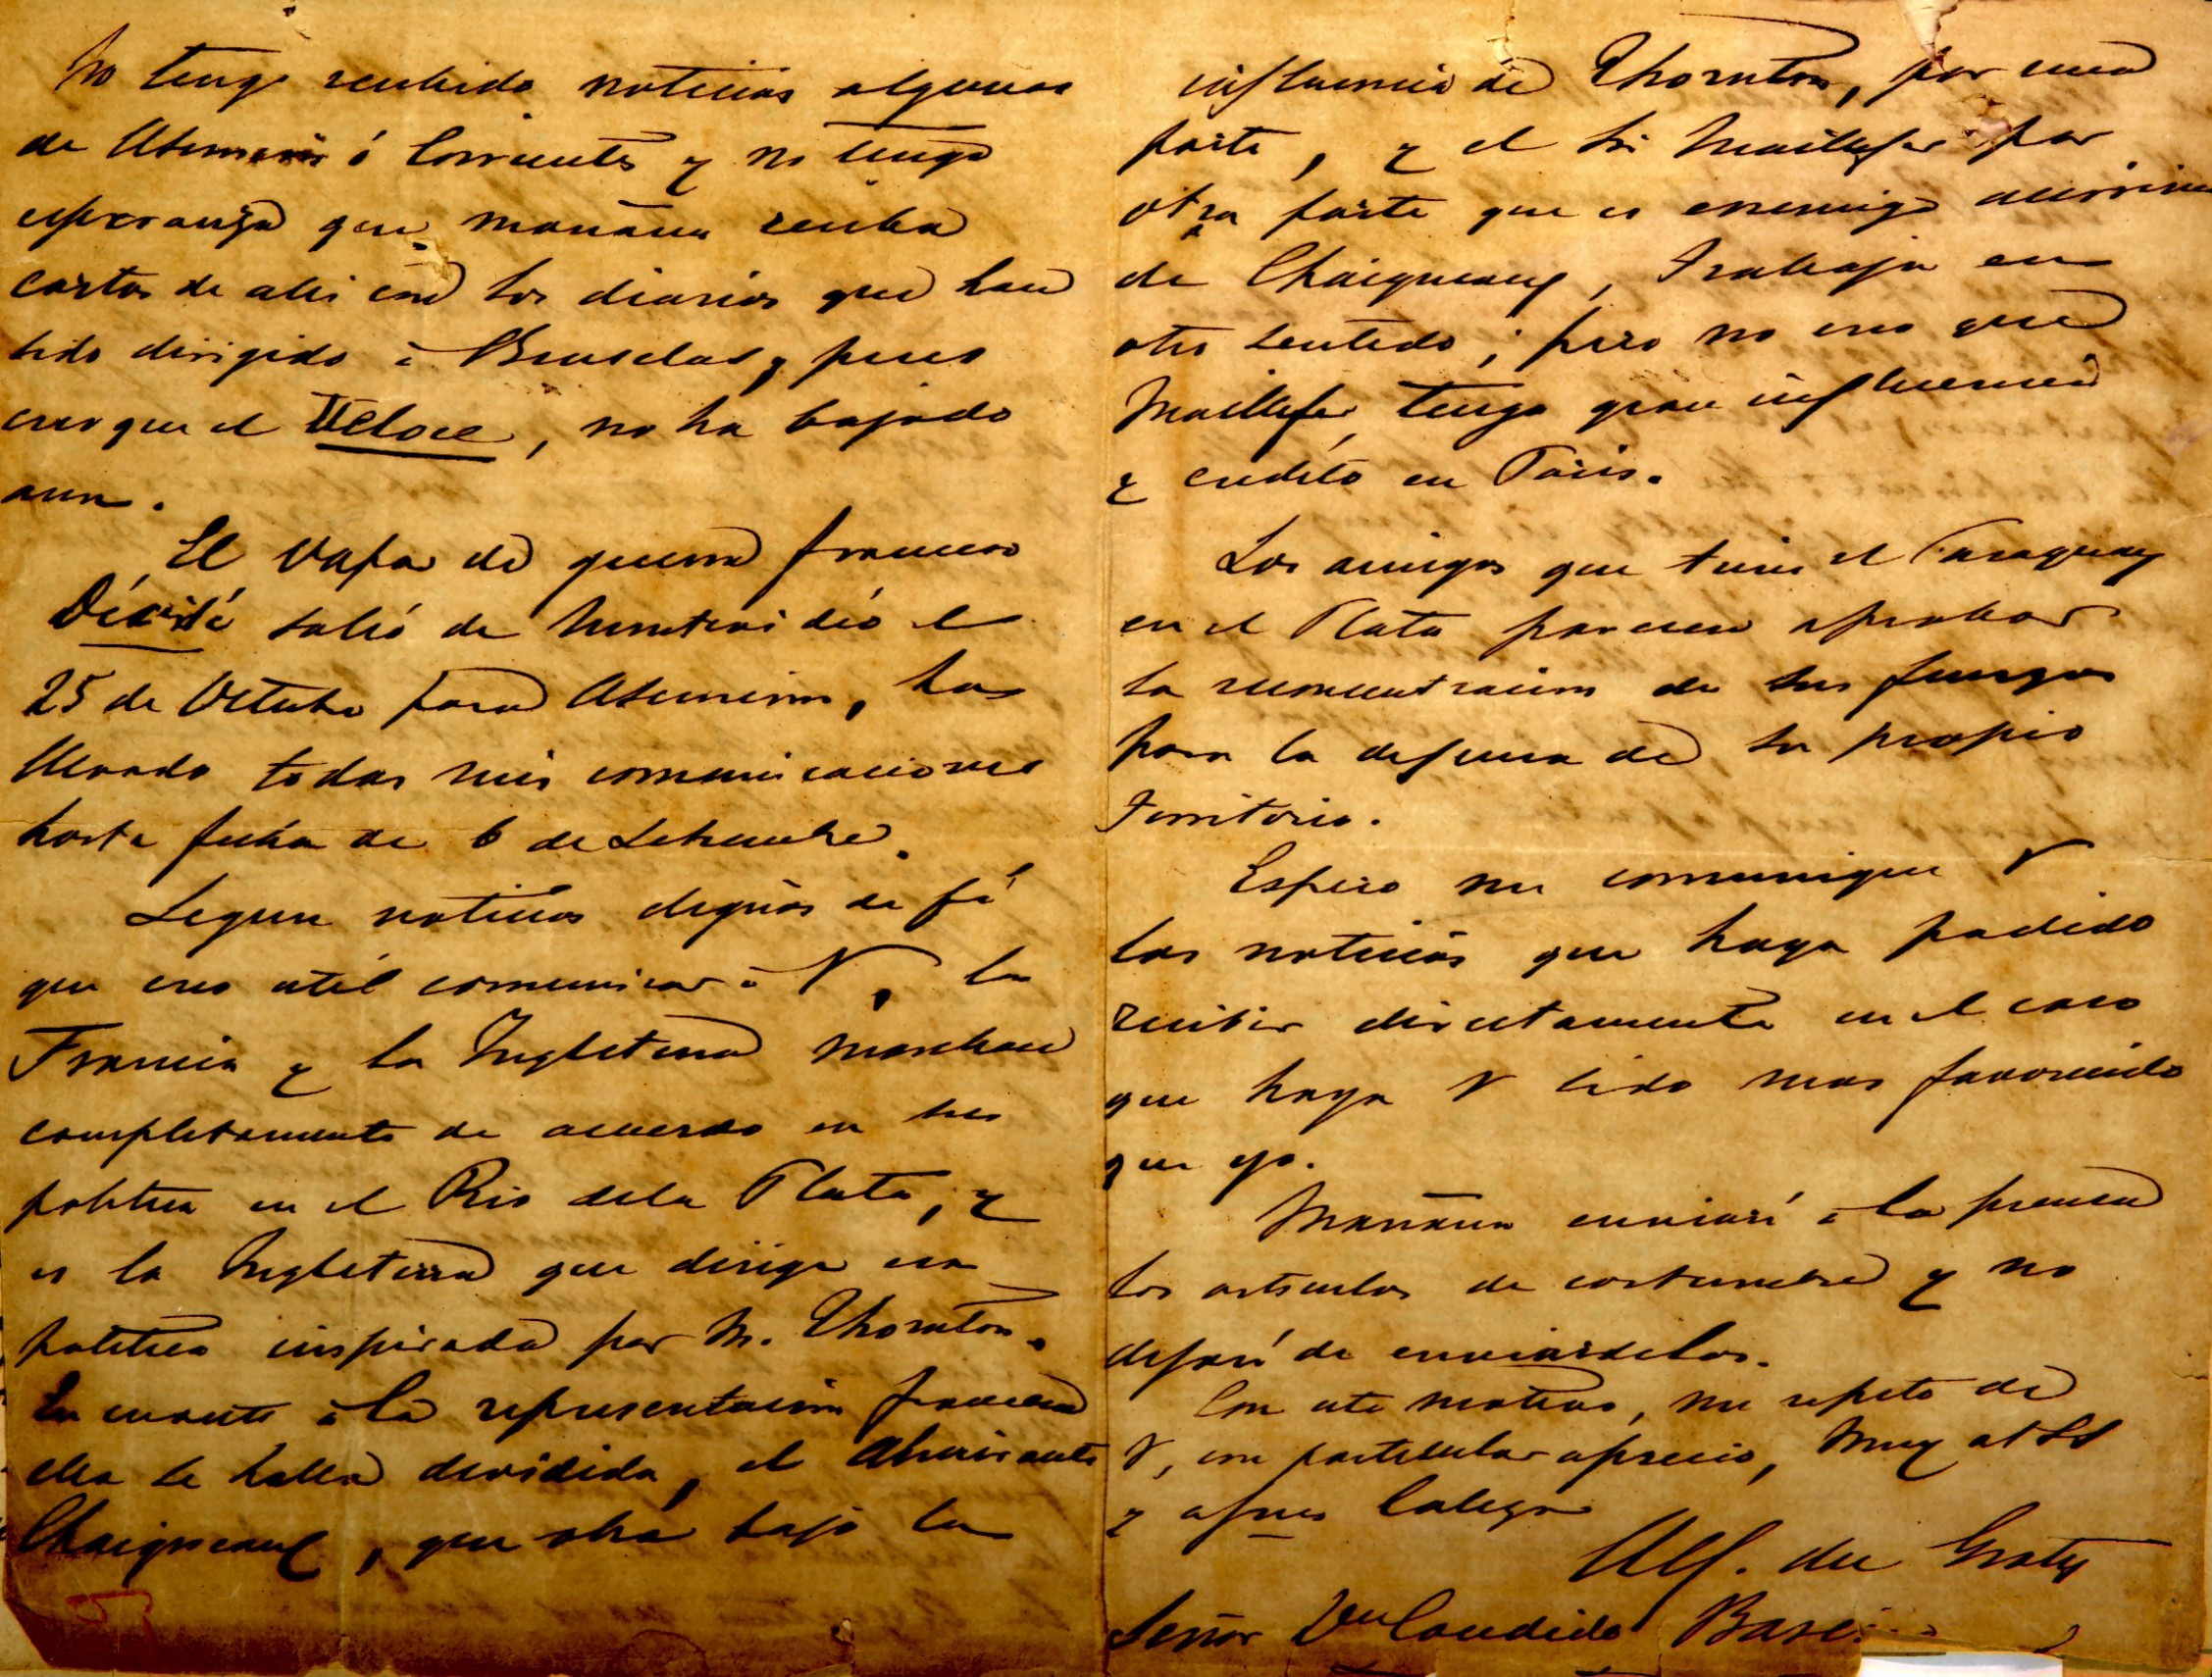 No tengo recibido noticias algunas
de Asuncion ó Corrientes y no tengo
esperanza que mañana reciba
cartas de alli con los diarios que han
sido dirigido à Bruselas, pues
creo que el Veloce, no ha bajado
aun.
El vapor de guerra frances
Décidé salió de Montevidéo el
25 de Octubre para Asuncion, ha
llevado todas mis comunicaciones
hasta fecha de 6 de Setiembre.
Segun noticias dignas de fé
que creo util comunicar à V, la
Francia y la Inglaterra marchan
completamente de acuerdo en su
politica en el Rio de la Plata, y
es la Inglaterra que dirige esa
politica inspirada por M. Thornton.
En cuanto à la representacion francesa
ella se halla devidida, el Almirante
Chaigneau, que obra bajo la
influencia de Thornton, por una
parte, y el Sr Maillefer por
otra parte que es enemigo acerrimo
de Chaigneau, trabaja en
otro sentido; pero no creo que
Maillefer tenga gran influencia
y credito en Paris.
Los amigos que tiene el Paraguay
en el Plata parecen aprobar
la reconcentracion de sus fuerzas
para la defensa de su propio
territorio.
Espero me comunique V
las noticias que haya podido
recibir directamente en el caso
que haya V sido mas favorecido
que yo.
Mañana enviaré à la prensa
los articulos de costumbre y no
dejaré de enviarselos.
Con este motivo, me repito de
V, con particular aprecio, muy att SS
y afmo Colega
Alf. du Graty
Señor Dn Candido Barei